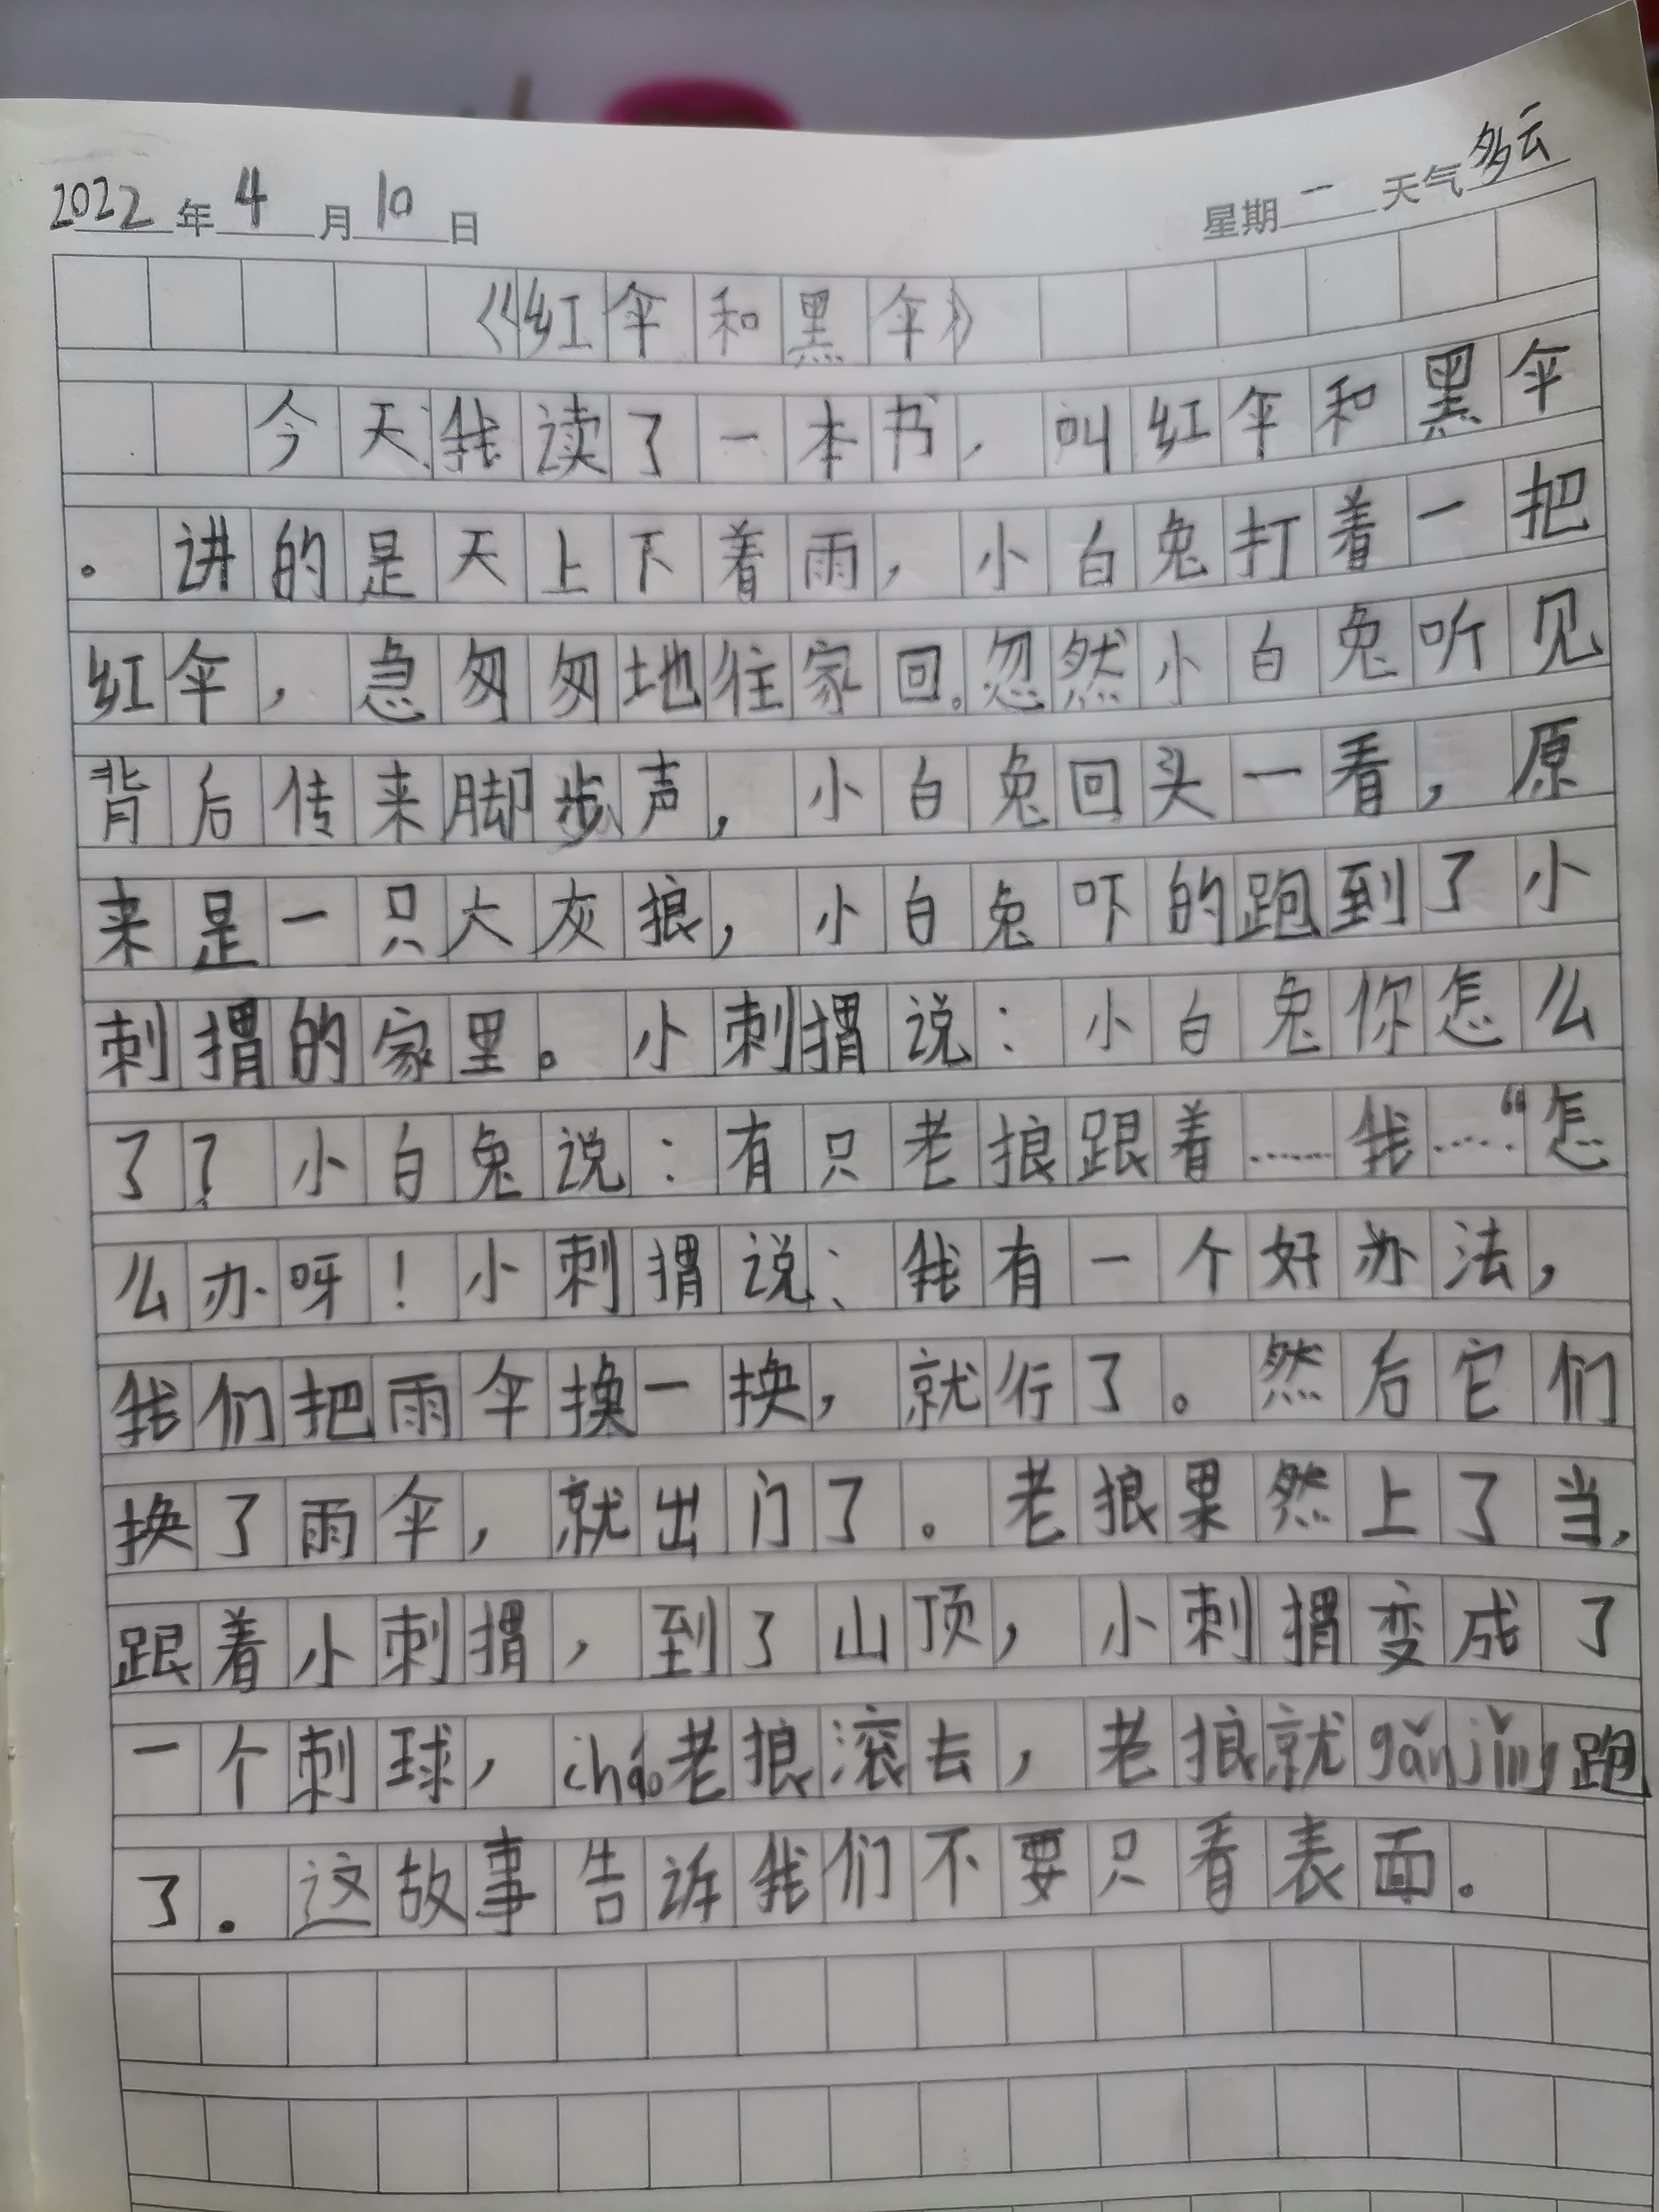 2022年4月10日 星期一 天气多云
《红伞和黑伞》
今天我读了一本书，叫红伞和黑伞
。讲的是天上下着雨，小白兔打着一把
红伞，急匆匆地往家回。忽然小白兔听见
背后传来脚步声，小白兔回头一看，原
来是一只大灰狼，小白兔吓的跑到了小
刺猬的家里。小刺猬说：小白兔你怎么
了？小白兔说：有只老狼跟着……我……“怎
么办呀！小刺猬说：我有一个好办法，
我们把雨伞换一换，就行了。然后它们
换了雨伞，就出门了。老狼果然上了当，
跟着小刺猬，到了山顶，小刺猬变成了
一个刺球，cháo老狼滚去，老狼就gǎnjǐng跑
了。这故事告诉我们不要只看表面。